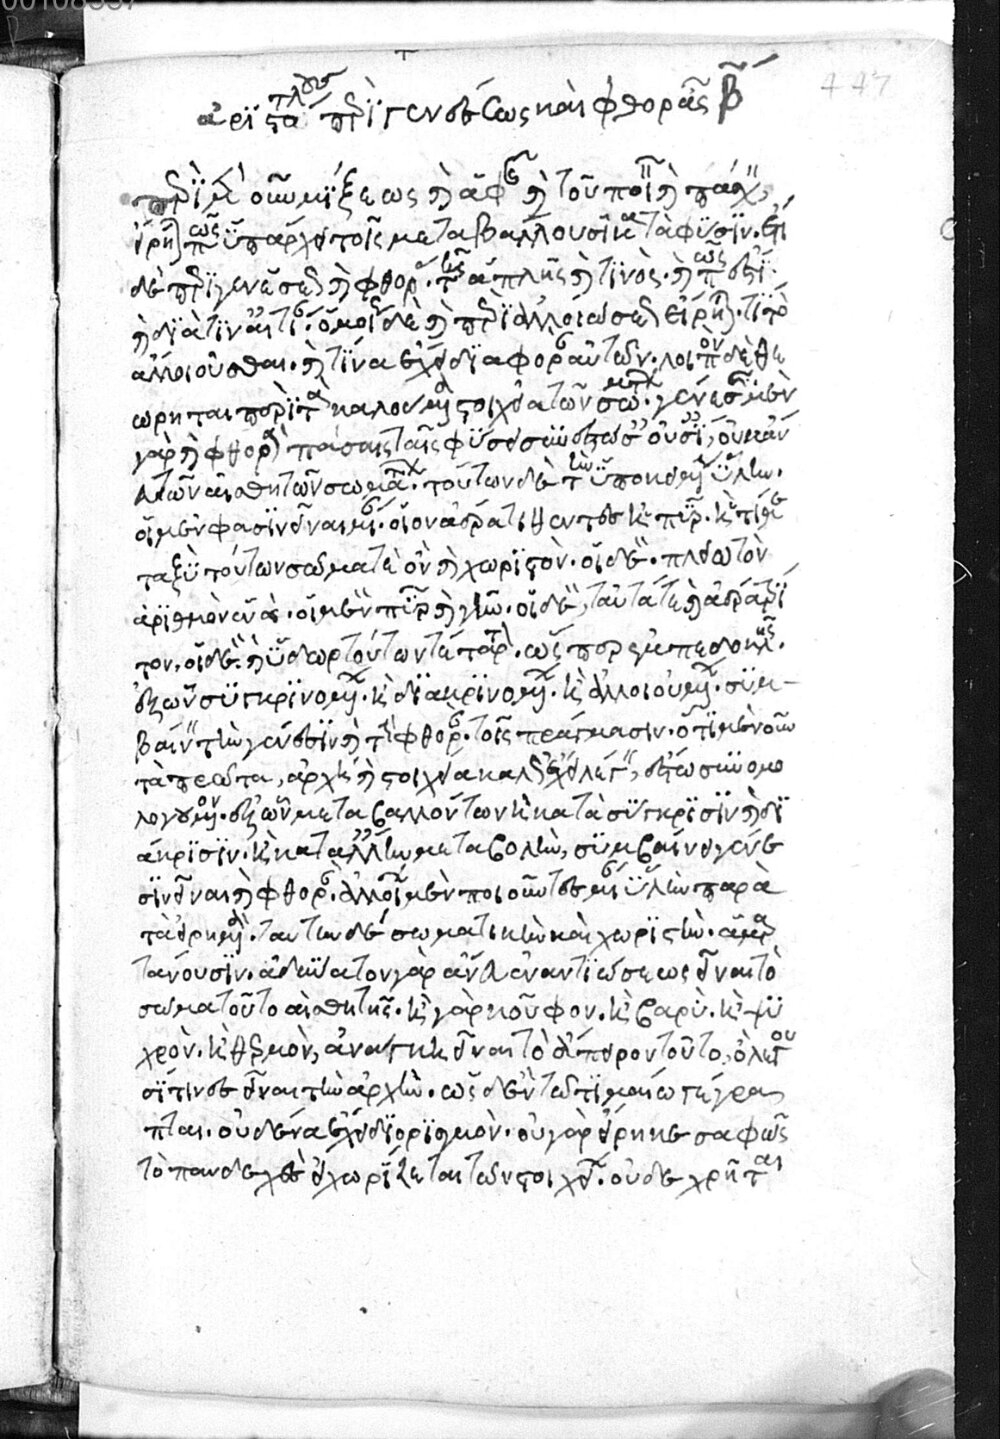 ἀριστοτέλους περὶ γενέσεως καὶ φθορᾶς β
περὶ μὲν οὖν μίξεως καὶ ἁφῆς καὶ τοῦ ποιεῖν καὶ πάσχειν,
εἴρηται πῶς ὑπάρχει τοῖς μεταβάλλουσι κατὰ φύσιν. ἔτι
δὲ περὶ γενέσεως καὶ φθορᾶς τῆς ἁπλῆς καὶ τινὸς καὶ πῶς ἐστι
καὶ διὰ τίν αἰτίαν. ὁμοίως δὲ καὶ περὶ ἀλλοιώσεως εἴρηται. τί τὸ
ἀλλοιοῦσθαι. καὶ τίνα ἔχει διαφορὰν αὐτῶν. λοιπὸν δὲ θε
ωρῆται περὶ τὰ καλούμενα στοιχεῖα τῶν σωμάτων. γένεσις μὲν
γὰρ καὶ φθορὰ πάσαις ταῖς φύσει συνεστώσαις οὐσίαις, οὐκ ἄν
τῶν αἰσθητῶν σωμάτων. τούτων δὲ τὴν ὑποκειμένην ὕλην.
οἱ μέν φασιν εἶναι μίαν. οἷον ἀέρα τιθέντες καὶ πῦρ. καὶ τι με
ταξὺ τούτων σῶμά τε ὂν καὶ χωριστόν. οἱ δὲ πλείω τὸν
ἀριθμὸν ἑνός. οἱ μὲν πῦρ καὶ γῆν. οἱ δὲ, ταῦτά τε καὶ ἀέρα τρί
τον, οἱ δὲ καὶ ὕδωρ τούτων τέταρτον. ὥσπερ ἐμπεδοκλῆς.
ἐξ ὧν συγκρινομένων. καὶ διακρινομένων. καὶ ἀλλοιουμένων. συμ-
βαίνειν τὴν γένεσιν καὶ τὴν φθορὰν τοῖς πράγμασιν. ὅτι μὲν οὖν
τὰ πρῶτα, ἀρχὰς καὶ στοιχεῖα καλῶς ἔχει λέγειν, ἔστω συνομο
λογούμενον. ἐξ ὧν μεταβαλλόντων καὶ κατὰ σύγκρισιν καὶ δι
άκρισιν. καὶ κατ ἄλλην μεταβολὴν, συμβαίνει γένε
σιν εἶναι καὶ φθοράν. ἀλλ οἱ μὲν ποιοῦντες μίαν ὕλην παρὰ
τὰ εἰρημένα. ταύτην δὲ σωματικὴν καὶ χωριστὴν. ἁμαρ
τάνουσιν. ἀδύνατον γὰρ ἄνευ ἐναντιώσεως εἶναι τὸ
σῶμα τοῦτο αἰσθητῆς. καὶ γὰρ κοῦφον. καὶ βαρὺ. καὶ ψυ
χρὸν. καὶ θερμὸν, ἀνάγκη εἶναι τὸ ἄπειρον τοῦτο, ὃ λέγου
σί τινες εἶναι τὴν ἀρχὴν. ὡς δ ἐν τῷ τιμαίω γέγρα
πται. οὐδένα ἔχει διορισμόν. οὐ γὰρ εἴρηκε σαφῶς
τὸ πανδεχὲς εἰ χωρίζεται τῶν στοιχείων. οὐδὲ χρῆται